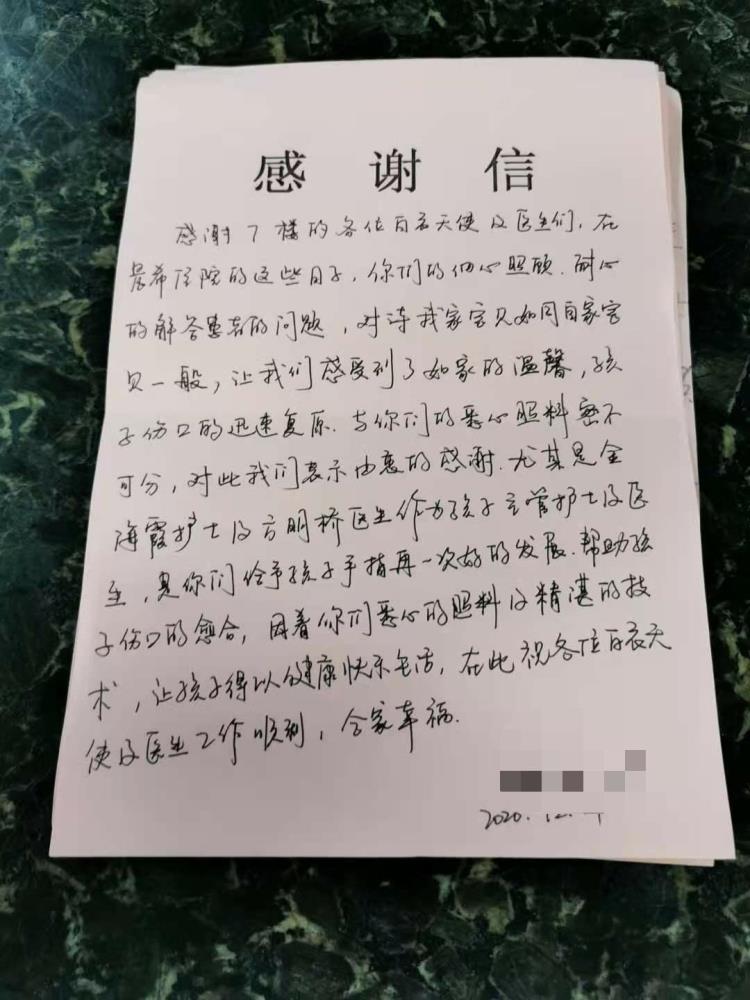 感谢信
感谢7楼的各位白衣天使及医生们,在
住院的这些日子,你们的细心照顾.耐心
的解答患者的问题,对待我家宝贝如同自家宝
贝一般,让我们感受到了如家的温馨,孩
子伤口的迅速复原.与你们的悉心照料密不
可分,对此我们表示由衷的感谢.尤其是金
海霞护士及方明桥医生作为孩子主管护士及医
生,是你们给予孩子手指再一次好的发展.帮助孩
子伤口的愈合,因着你们悉心的照料及精湛的技
术,让孩子得以健康快乐生活,在此祝各位白衣天
使及医生工作顺利,合家幸福.
2020.12.